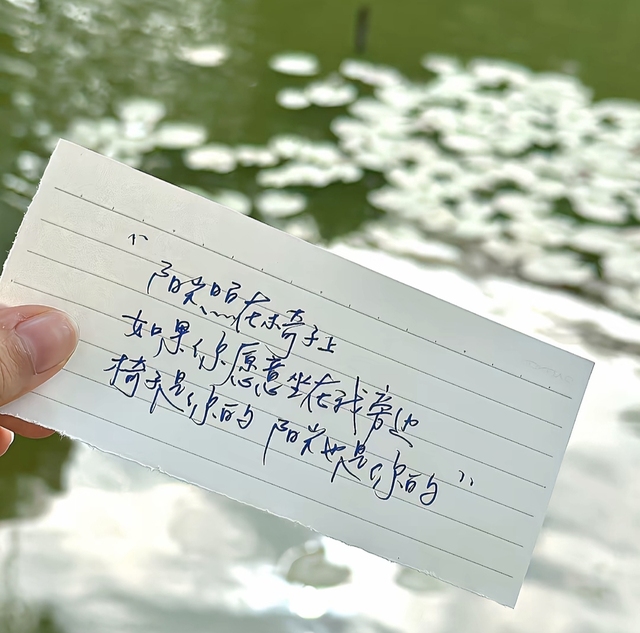 “
阳光照在椅子上
如果你愿意坐在我旁边
椅子是你的 阳光也是你的”